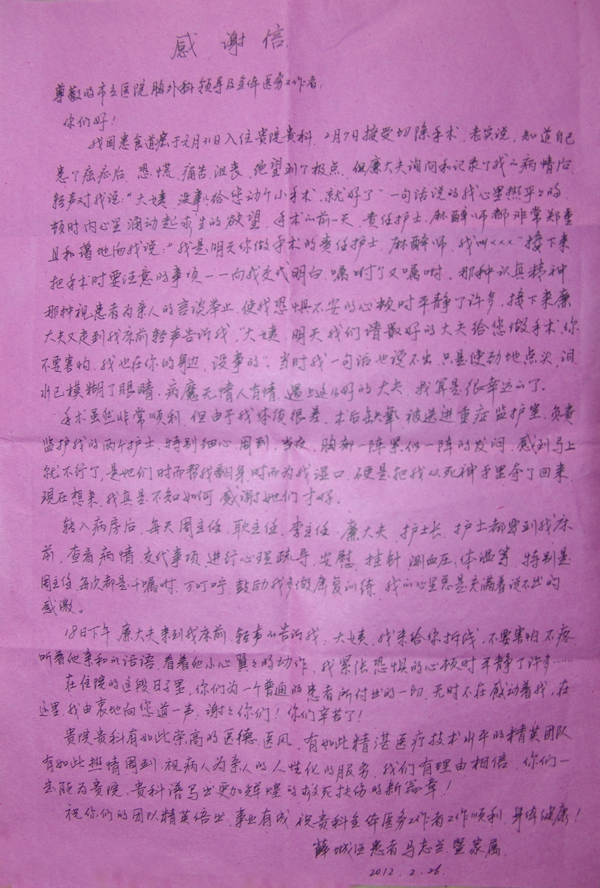 感谢信
尊敬的市立医院胸外科领导及全体医务工作者:
你们好!
我因患食道癌于元月31日入住贵院贵科,2月7日接受切除手术,老实说,知道自己
患了癌症后,恐慌、痛苦、沮丧、绝望到了极点,但廉大夫询问和记录了我的病情后
轻声对我说:"大姨,没事,给您动个小手术,就好了"一句话说的我心里热乎乎的
顿时内心里涌动起求生的欲望。手术的前一天,责任护士、麻醉师都非常郑重
且和蔼地向我说:"我是明天你做手术的责任护士、麻醉师,我叫×××"接下来
把手术时要注意的事项一一向我交代明白,嘱咐了又嘱咐,那种认真精神
那种视患者为亲人的言谈举止,使我恐惧不安的心顿时平静了许多,接下来廉
大夫又走到我床前轻声告诉我,"大姨,明天我们请最好的大夫给您做手术,你
不要害怕,我也在你的身边,没事的",当时我一句话也说不出,只是使劲地点头,泪
水已模糊了眼睛。病魔无情人有情,遇上这么好的大夫,我算是很幸运的了。
手术虽然非常顺利,但由于我体质很差,术后缺氧,被送进重症监护室,负责
监护我的两个护士,特别细心周到,当夜,胸部一阵紧似一阵的发闷,感到马上
就不行了,是她们时而帮我翻身,时而为我湿口,硬是把我从死神手里夺了回来
现在想来,我真是不知如何感谢她们才好。
转入病房后,每天周主任、耿主任、李主任、廉大夫、护士长、护士都要到我床
前,查看病情,交代事项,进行心理疏导、安慰、挂针、测血压、体温等,特别是
周主任,每次都是千嘱咐,万叮咛,鼓励我多做康复训练,我的心里总是充满着说不出的
感激。
18日下午,廉大夫来到我床前,轻声的告诉我:大姨,我来给你拆线,不要害怕,不疼
听着他亲和的话语,看着他小心翼翼的动作,我紧张恐惧的心顿时平静了许多……
在住院的这段日子里,你们为一个普通的患者所付出的一切,无时不在感动着我,在
这里,我由衷地向您道一声,谢谢你们!你们辛苦了!
贵院贵科有如此崇高的医德医风,有如此精湛医疗技术水平的精英团队
有如此热情周到,视病人为亲人的人性化的服务,我们有理由相信,你们一
定能为贵院、贵科谱写出更加辉煌的救死扶伤的新篇章!
祝你们的团队精英倍出,事业有成,祝贵科全体医务工作者工作顺利,身体健康!
薛城区患者马志兰暨家属
2012.2.26.